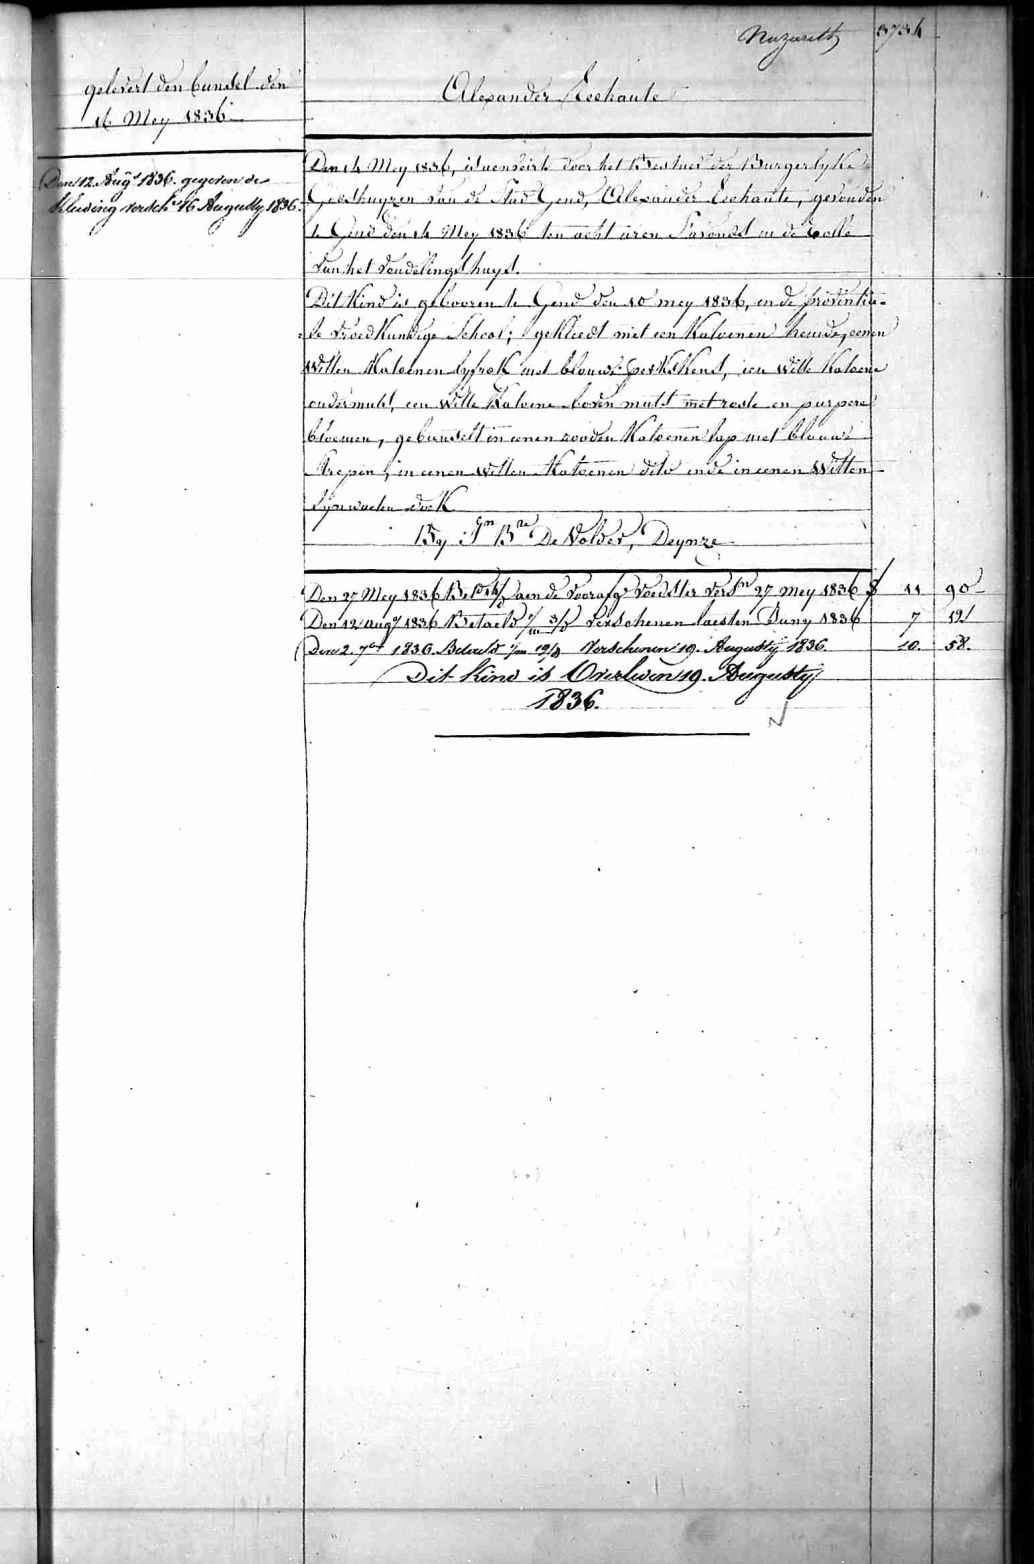 Nazareth 3734
gelevert den bundel den
16 Mey 1836
Alexander Eechaute
Den 12 Augt 1836. gegeven de
kleeding versch. 16 Augusty 1836.
Den 14 Mey 1836, is aenveirt door het Bestuer der Burgerlyke
Godshuyzen van de Stad Gend, Alexander Eechaute, gevonden
te Gend den 14 Mey 1836 ten acht uren s'avonds in de Rolle
van het vondelingshuys.
Dit Kind is gebooren te Gend den 10 mey 1836, in de provintia-
le vroedkundige School; gekleedt met een Katoenen hemde, eenen
witten Katoenen lyfrok met blouwe perkskens, een witte Katoene
ondermuts, een witte Katoene boven muts met roste en purpere
bloemen, gebunselt in eenen rooden Katoenen lap met blauwe
strepen, in eenen witten Katoenen dito ende in eenen witten
lynwaeden doek
By Jn Bte De Volder, Deynze
Den 27 Mey 1836 Bet aen de voorafge voedster vers 27 mey 1836 f 11 90
Den 12 augt 1836 Betaeld 1/m 3/d verschenen laesten Juny 1836 7 52
Den 2. 7ber 1836. Betaeld 1/m 19/d Verschenen 19. Augusty 1836. 10. 58.
Dit kind is Overleden 19. Augusty
1836.